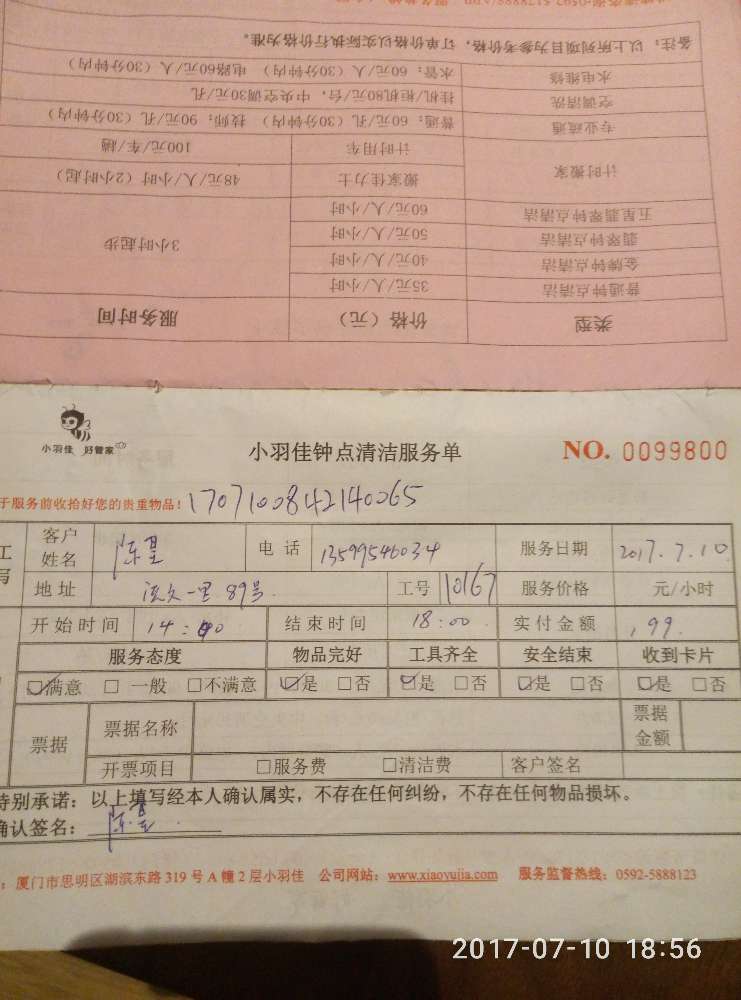 备注：以上所列项目为参考价格，订单价格以实际执行价格为准。
水电维修 水管：60元/人（30分钟内） 电路60元/人（30分钟内）
空调清洗 挂机/柜机80元/台，中央空调30元/孔
专业疏通 普通：60元/孔（30分钟内） 技师：90元/孔（30分钟内）
计时搬家 计时用车 100元/车/趟
搬家佳力士 48元/人/小时（2小时起）
五星翡翠钟点清洁 60元/人/小时
翡翠钟点清洁 50元/人/小时 3小时起步
金牌钟点清洁 40元/人/小时
普通钟点清洁 35元/人/小时
类型 价格（元） 服务时间
小羽佳 好管家
小羽佳钟点清洁服务单
NO. 0099800
于服务前收拾好您的贵重物品！ 1707100842140065
客户姓名 电话 13599546034 服务日期 2017.7.10.
地址 89号 工号 10167 服务价格 元/小时
开始时间 14:00 结束时间 18:00 实付金额 199.
服务态度 物品完好 工具齐全 安全结束 收到卡片
☑满意 □一般 □不满意 ☑是 □否 ☑是 □否 ☑是 □否 ☑是 □否
票据 票据名称 票据金额
开票项目 □服务费 □清洁费 客户签名
特别承诺：以上填写经本人确认属实，不存在任何纠纷，不存在任何物品损坏。
确认签名：
：厦门市思明区湖滨东路 319 号 A 幢 2 层小羽佳 公司网站：www.xiaoyujia.com 服务监督热线：0592-5888123
2017-07-10 18:56